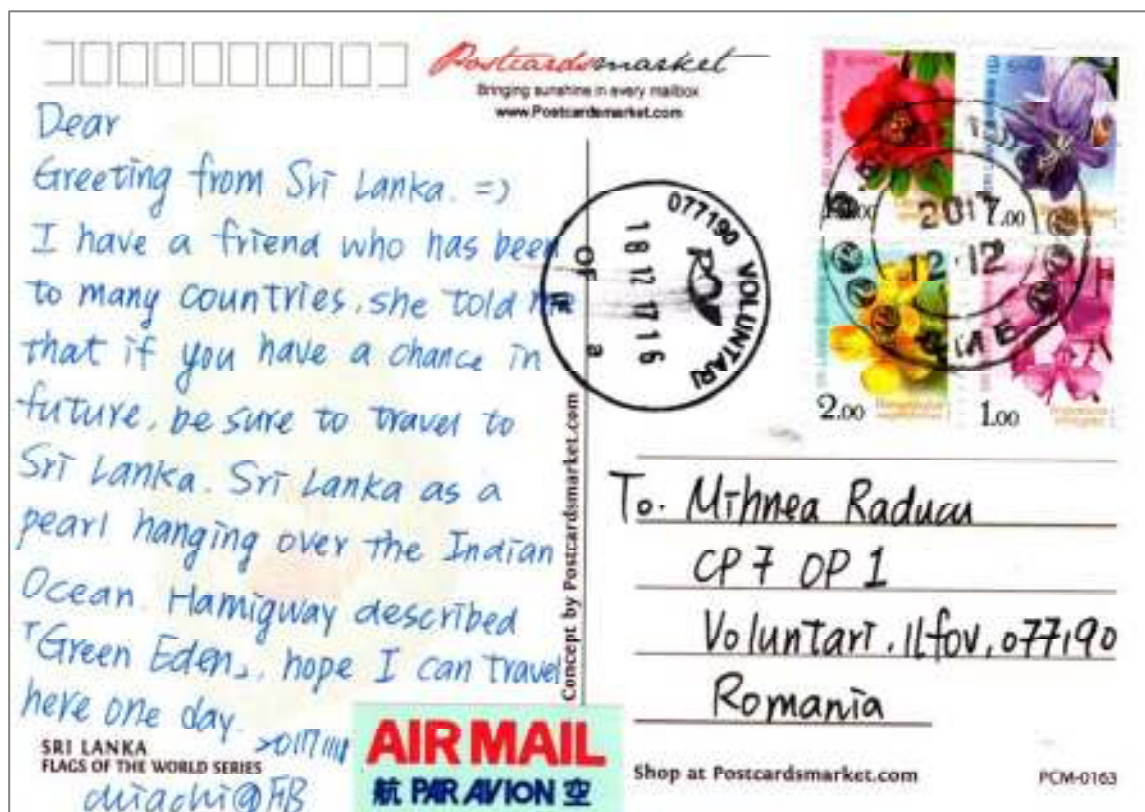 Postcardsmarket
Bringing sunshine in every mailbox
www.Postcardsmarket.com
Dear
Greeting from Sri Lanka. =)
I have a friend who has been
to many countries, she told me
that if you have a chance in
future, be sure to travel to
Sri Lanka. Sri Lanka as a
pearl hanging over the Indian
Ocean. Hamigway described
「Green Eden」, hope I can travel
here one day.
chiachi@FB
SRI LANKA
FLAGS OF THE WORLD SERIES
AIR MAIL
航 PAR AVION 空
Concept by Postcardsmarket.com
077190 VOLUNTARI
18 12 17 16
OF
a
2017
12.12
7.00
2.00
1.00
To. Mihnea Raducu
CP 7 OP 1
Voluntari, Ilfov, 077190
Romania
Shop at Postcardsmarket.com
PCM-0163